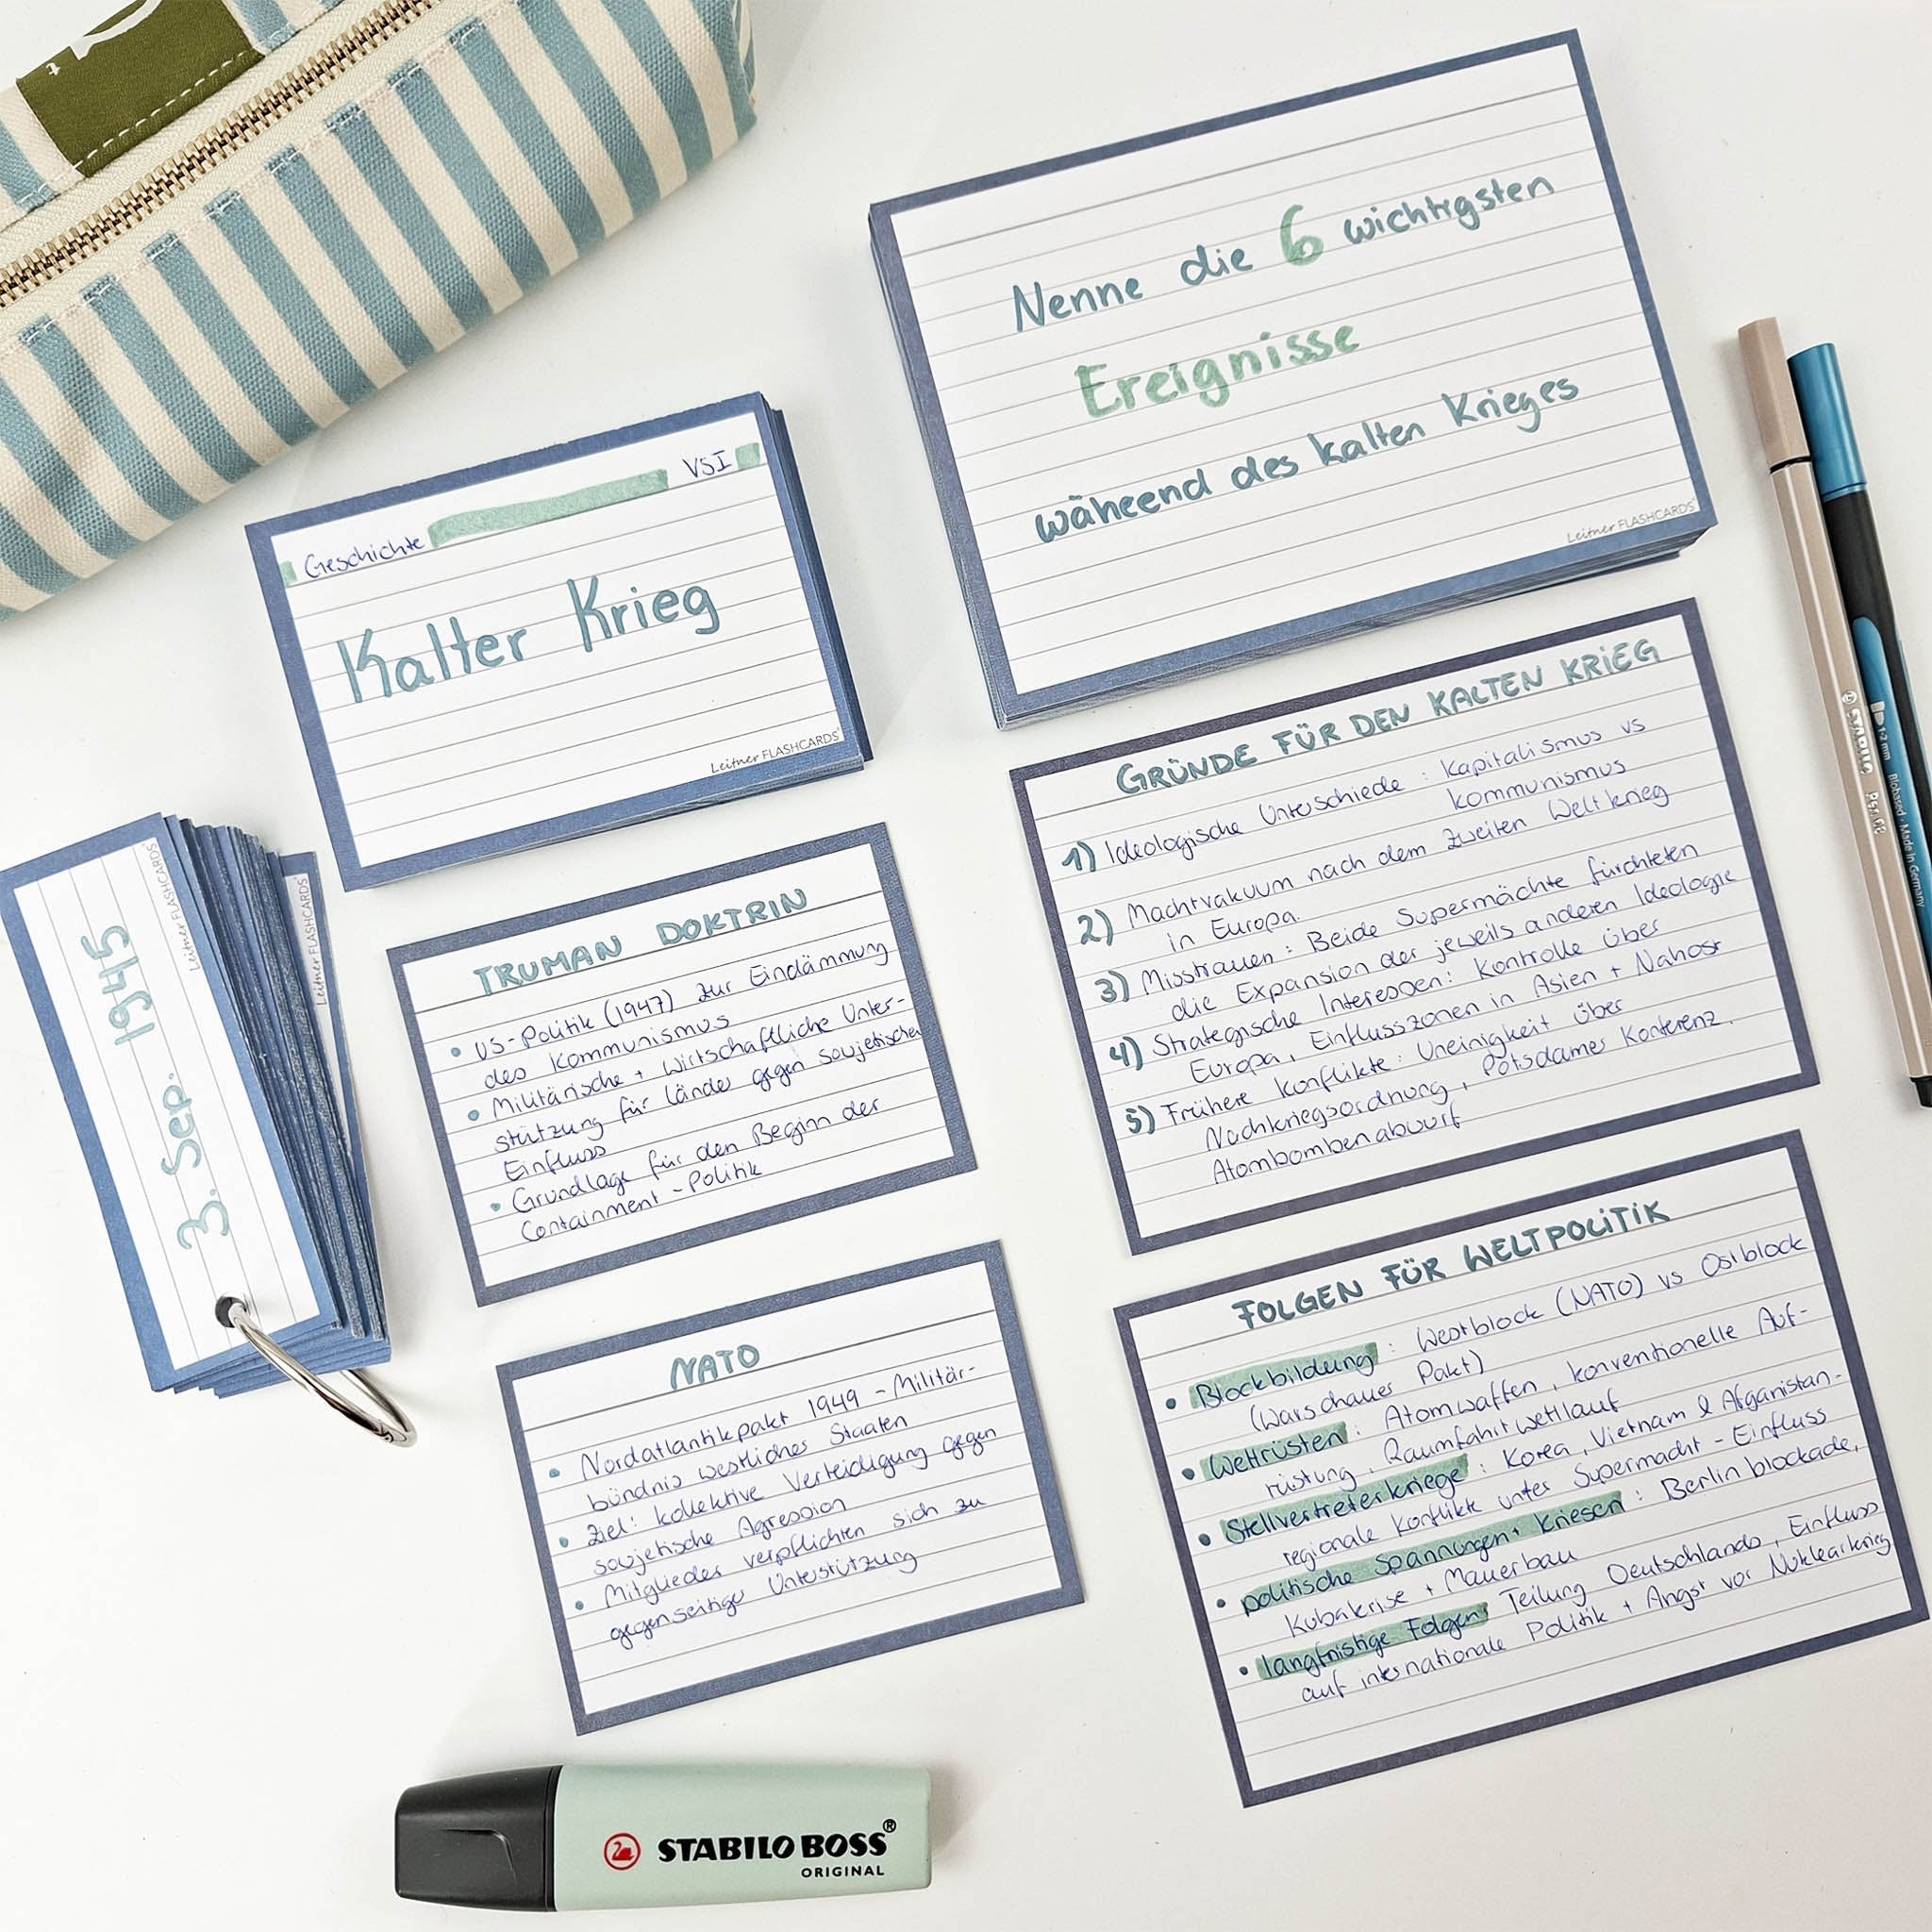 Geschichte VSI
Kalter Krieg
Leitner FLASHCARDS
Nenne die 6 wichtigsten
Ereignisse
wäheend des kalten Krieges
Leitner FLASHCARDS
3. Sep. 1945
Leitner FLASHCARDS
Leitner FLASHCARDS
TRUMAN DOKTRIN
• US-Politik (1947) zur Eindämmung
des Kommunismus
• Militärische + Wirtschaftliche Unter-
stützung für Länder gegen sowjetischen
Einfluss
• Grundlage für den Beginn der
Containment-Politik
NATO
• Nordatlantikpakt 1949 - Militär-
bündnis westlicher Staaten
• Ziel: kollektive Verteidigung gegen
sowjetische Agression
• Mitglieder verpflichten sich zu
gegenseitiger Unterstützung
GRÜNDE FÜR DEN KALTEN KRIEG
1) Ideologische Unterschiede: Kapitalismus vs
Kommunismus
2) Machtvakuum nach dem Zweiten Weltkrieg
in Europa.
3) Misstrauen: Beide Supermächte fürchteten
die Expansion der jeweils anderen Ideologie
4) Strategische Interessen: Kontrolle über
Europa, Einflusszonen in Asien + Nahost
5) Frühere Konflikte: Uneinigkeit über
Nachkriegsordnung, Potsdamer Konferenz,
Atombombenabwurf
FOLGEN FÜR WELTPOLITIK
• Blockbildung: Westblock (NATO) vs Ostblock
(Warschauer Pakt)
• Wettrüsten: Atomwaffen, konventionelle Auf-
rüstung, Raumfahrtwettlauf
• Stellvertreterkriege: Korea, Vietnam & Afganistan-
regionale Konflikte unter Supermacht-Einfluss
• politische Spannungen + Kriesen: Berlinblockade,
Kubakrise + Mauerbau
• langfristige Folgen: Teilung Deutschlands, Einfluss
auf internationale Politik + Angst vor Nuklearkrieg
STABILO BOSS®
ORIGINAL
Biobased • Made in Germany